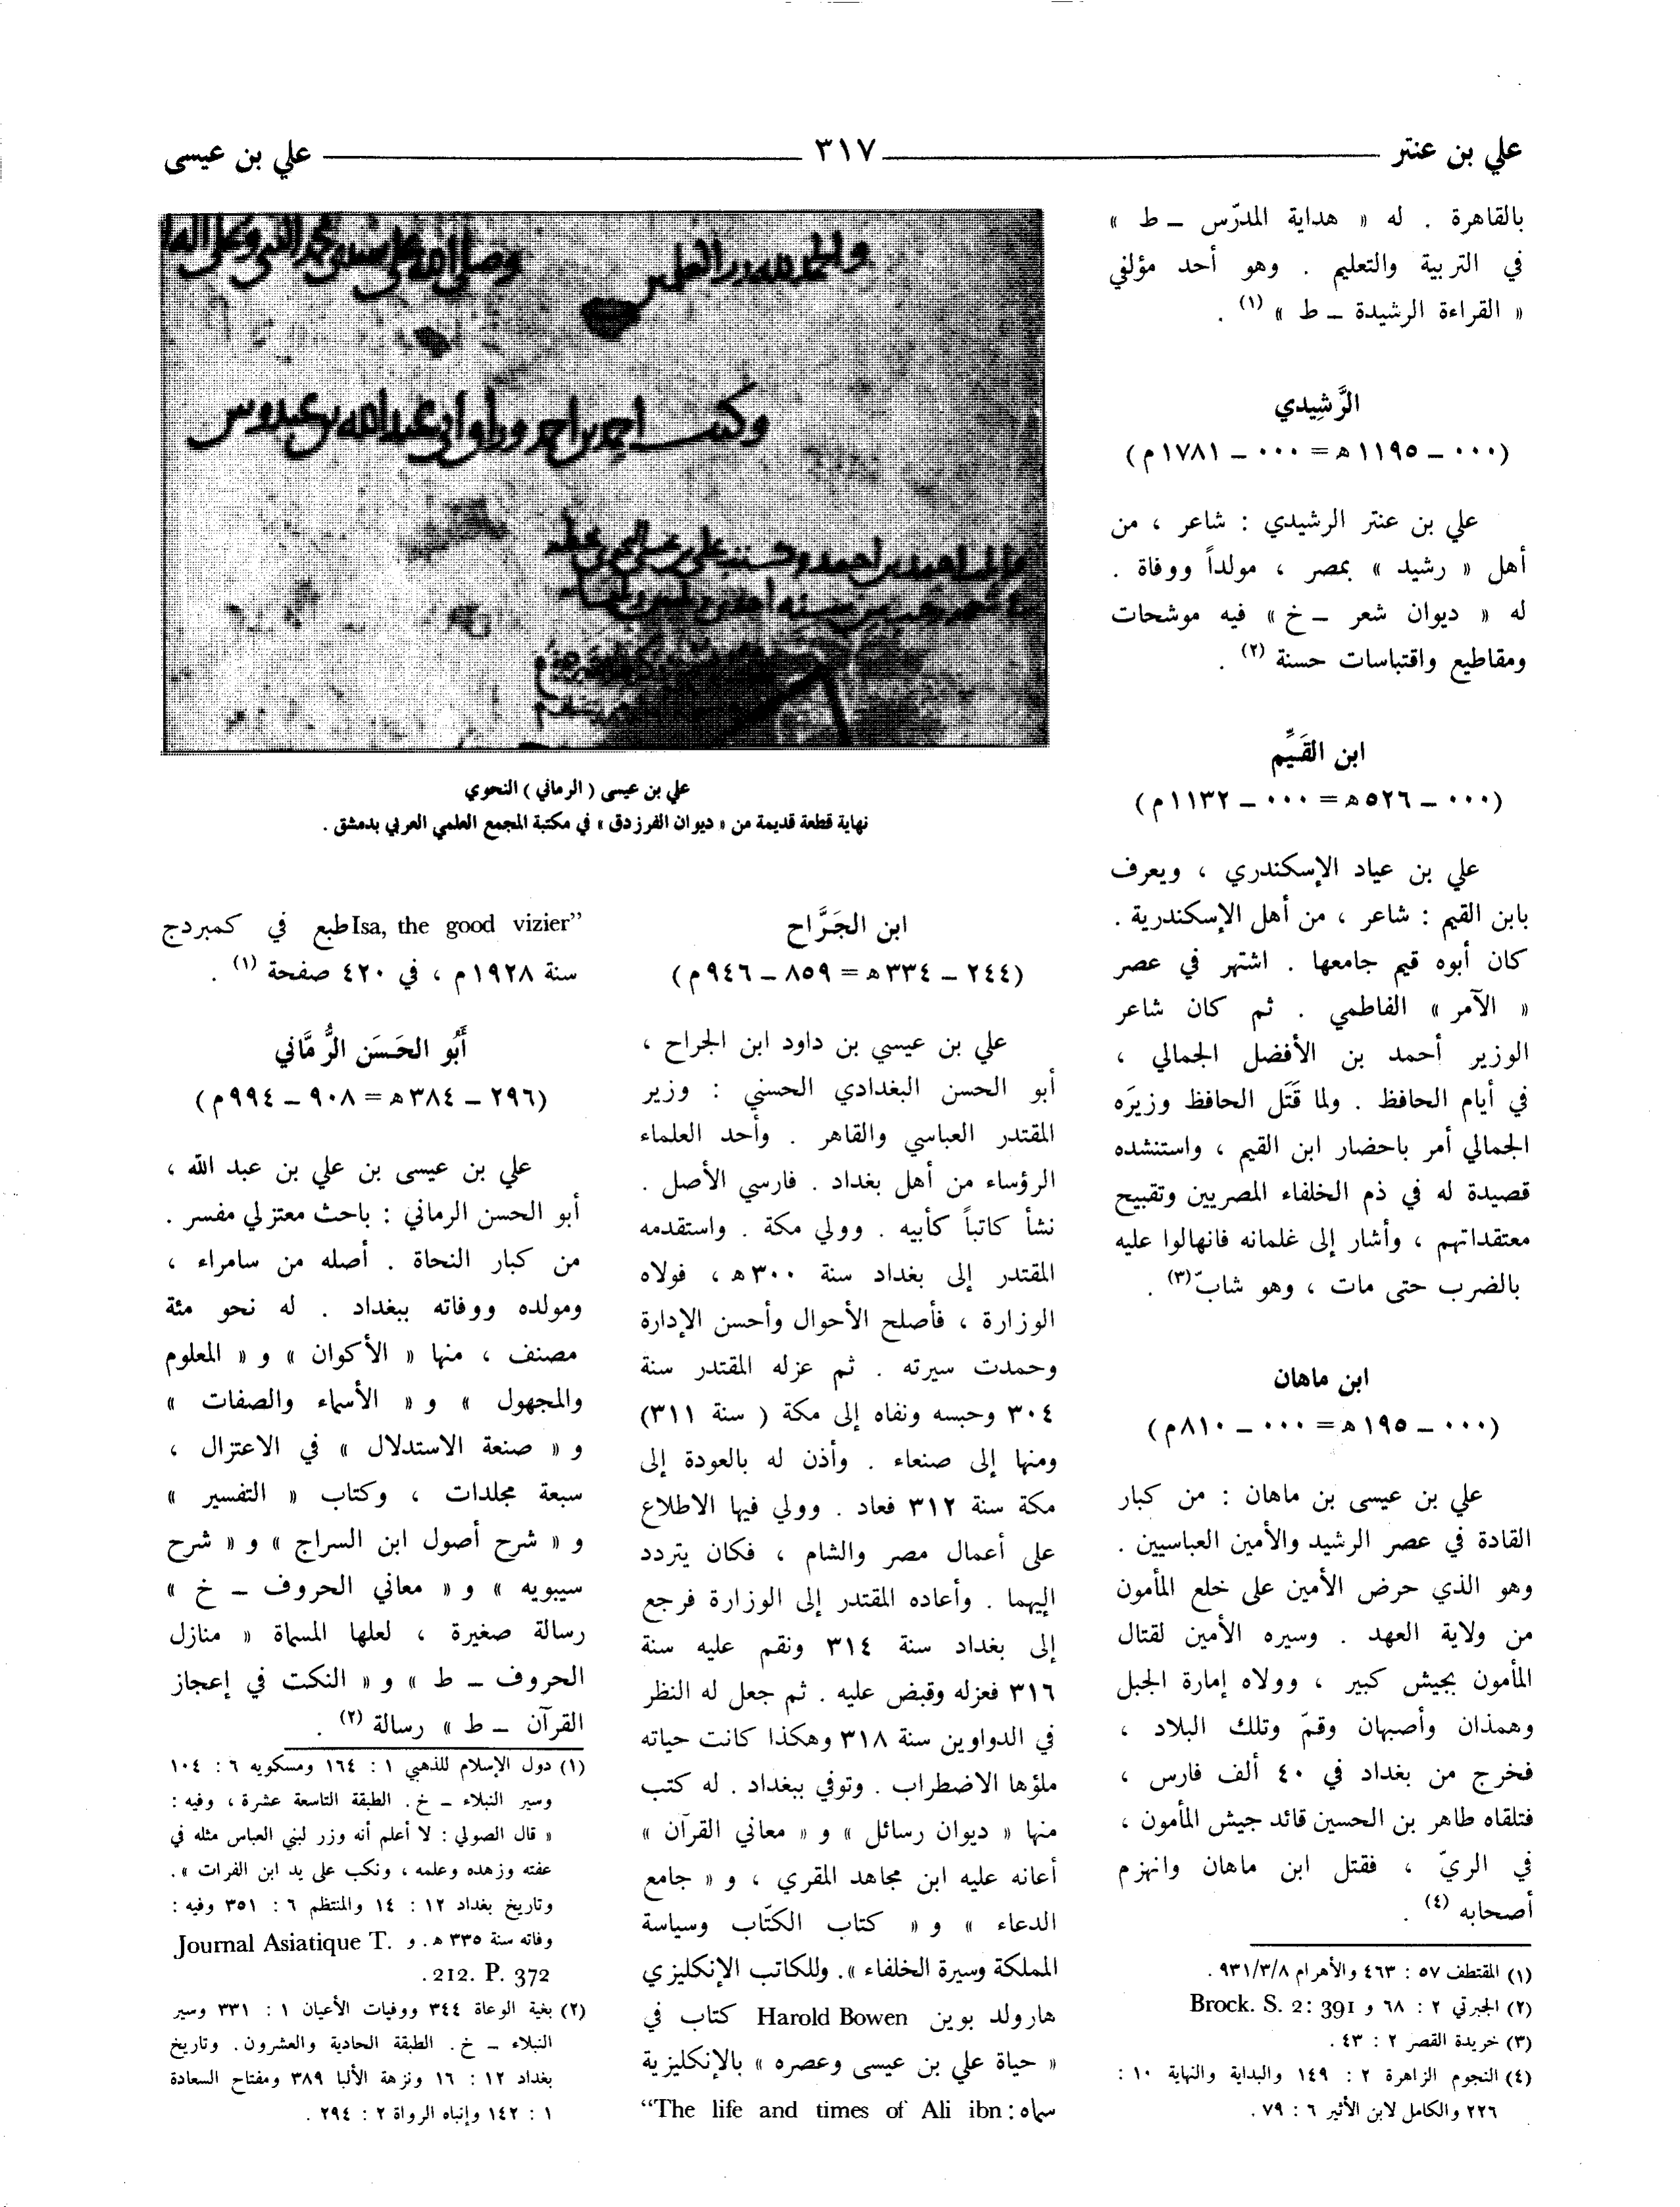 علي بن عنتر ٣١٧ علي بن عيسى
بالقاهرة . له « هداية المدرّس – ط »
في التربية والتعليم . وهو أحد مؤلفي
« القراءة الرشيدة – ط » (١) .
الرَّشِيدي
(٠٠٠ – ١١٩٥ ه = ٠٠٠ – ١٧٨١ م)
علي بن عنتر الرشيدي : شاعر ، من
أهل « رشيد » بمصر ، مولداً ووفاة .
له « ديوان شعر – خ » فيه موشحات
ومقاطيع واقتباسات حسنة (٢) .
ابن القَيِّم
(٠٠٠ – ٥٢٦ ه = ٠٠٠ – ١١٣٢ م)
علي بن عياد الإسكندري ، ويعرف
بابن القيم : شاعر ، من أهل الإسكندرية .
كان أبوه قيم جامعها . اشتهر في عصر
« الآمر » الفاطمي . ثم كان شاعر
الوزير أحمد بن الأفضل الجمالي ،
في أيام الحافظ . ولما قَتَل الحافظ وزيرَه
الجمالي أمر باحضار ابن القيم ، واستنشده
قصيدة له في ذم الخلفاء المصريين وتقبيح
معتقداتهم ، وأشار إلى غلمانه فانهالوا عليه
بالضرب حتى مات ، وهو شابّ (٣) .
ابن ماهان
(٠٠٠ – ١٩٥ ه = ٠٠٠ – ٨١٠ م)
علي بن عيسى بن ماهان : من كبار
القادة في عصر الرشيد والأمين العباسيين .
وهو الذي حرض الأمين على خلع المأمون
من ولاية العهد . وسيره الأمين لقتال
المأمون بجيش كبير ، وولاه إمارة الجبل
وهمذان وأصبهان وقمّ وتلك البلاد ،
فخرج من بغداد في ٤٠ ألف فارس ،
فتلقاه طاهر بن الحسين قائد جيش المأمون ،
في الريّ ، فقتل ابن ماهان وانهزم
أصحابه (٤) .
(١) المقتطف ٥٧ : ٤٦٣ والأهرام ٩٣١/٣/٨ .
(٢) الجبرتي ٢ : ٦٨ و Brock. S. 2: 391
(٣) خريدة القصر ٢ : ٤٣ .
(٤) النجوم الزاهرة ٢ : ١٤٩ والبداية والنهاية ١٠ :
٢٢٦ والكامل لابن الأثير ٦ : ٧٩ .
والحمد لله رب العلمين وصلى الله على سيدنا محمد النبي وعلى اله
وكتب احمد بن احمد
علي بن عيسى ( الرماني ) النحوي
نهاية قطعة قديمة من « ديوان الفرزدق » في مكتبة المجمع العلمي العربي بدمشق .
ابن الجَرَّاح
(٢٤٤ – ٣٣٤ ه = ٨٥٩ – ٩٤٦ م)
علي بن عيسي بن داود ابن الجراح ،
أبو الحسن البغدادي الحسني : وزير
المقتدر العباسي والقاهر . وأحد العلماء
الرؤساء من أهل بغداد . فارسي الأصل .
نشأ كاتباً كأبيه . وولي مكة . واستقدمه
المقتدر إلى بغداد سنة ٣٠٠ ه ، فولاه
الوزارة ، فأصلح الأحوال وأحسن الإدارة
وحمدت سيرته . ثم عزله المقتدر سنة
٣٠٤ وحبسه ونفاه إلى مكة ( سنة ٣١١)
ومنها إلى صنعاء . وأذن له بالعودة إلى
مكة سنة ٣١٢ فعاد . وولي فيها الاطلاع
على أعمال مصر والشام ، فكان يتردد
إليهما . وأعاده المقتدر إلى الوزارة فرجع
إلى بغداد سنة ٣١٤ ونقم عليه سنة
٣١٦ فعزله وقبض عليه . ثم جعل له النظر
في الدواوين سنة ٣١٨ وهكذا كانت حياته
ملؤها الاضطراب . وتوفي ببغداد . له كتب
منها « ديوان رسائل » و « معاني القرآن »
أعانه عليه ابن مجاهد المقري ، و « جامع
الدعاء » و « كتاب الكتّاب وسياسة
المملكة وسيرة الخلفاء ». وللكاتب الإنكليزي
هارولد بوين Harold Bowen كتاب في
« حياة علي بن عيسى وعصره » بالإنكليزية
سماه : “The life and times of Ali ibn
Isa, the good vizier” طبع في كمبردج
سنة ١٩٢٨ م ، في ٤٢٠ صفحة (١) .
أَبُو الحَسَن الرُّمَّاني
(٢٩٦ – ٣٨٤ ه = ٩٠٨ – ٩٩٤ م)
علي بن عيسى بن علي بن عبد الله ،
أبو الحسن الرماني : باحث معتزلي مفسر .
من كبار النحاة . أصله من سامراء ،
ومولده ووفاته ببغداد . له نحو مئة
مصنف ، منها « الأكوان » و « المعلوم
والمجهول » و « الأسماء والصفات »
و « صنعة الاستدلال » في الاعتزال ،
سبعة مجلدات ، وكتاب « التفسير »
و « شرح أصول ابن السراج » و « شرح
سيبويه » و « معاني الحروف – خ »
رسالة صغيرة ، لعلها المسماة « منازل
الحروف – ط » و « النكت في إعجاز
القرآن – ط » رسالة (٢) .
(١) دول الإسلام للذهبي ١ : ١٦٤ ومسكويه ٦ : ١٠٤
وسير النبلاء – خ . الطبقة التاسعة عشرة ، وفيه :
« قال الصولي : لا أعلم أنه وزر لبني العباس مثله في
عفته وزهده وعلمه ، ونكب على يد ابن الفرات » .
وتاريخ بغداد ١٢ : ١٤ والمنتظم ٦ : ٣٥١ وفيه :
وفاته سنة ٣٣٥ ه . و Journal Asiatique T.
212. P. 372 .
(٢) بغية الوعاة ٣٤٤ ووفيات الأعيان ١ : ٣٣١ وسير
النبلاء – خ . الطبقة الحادية والعشرون . وتاريخ
بغداد ١٢ : ١٦ ونزهة الألبا ٣٨٩ ومفتاح السعادة
١ : ١٤٢ وإنباه الرواة ٢ : ٢٩٤ .